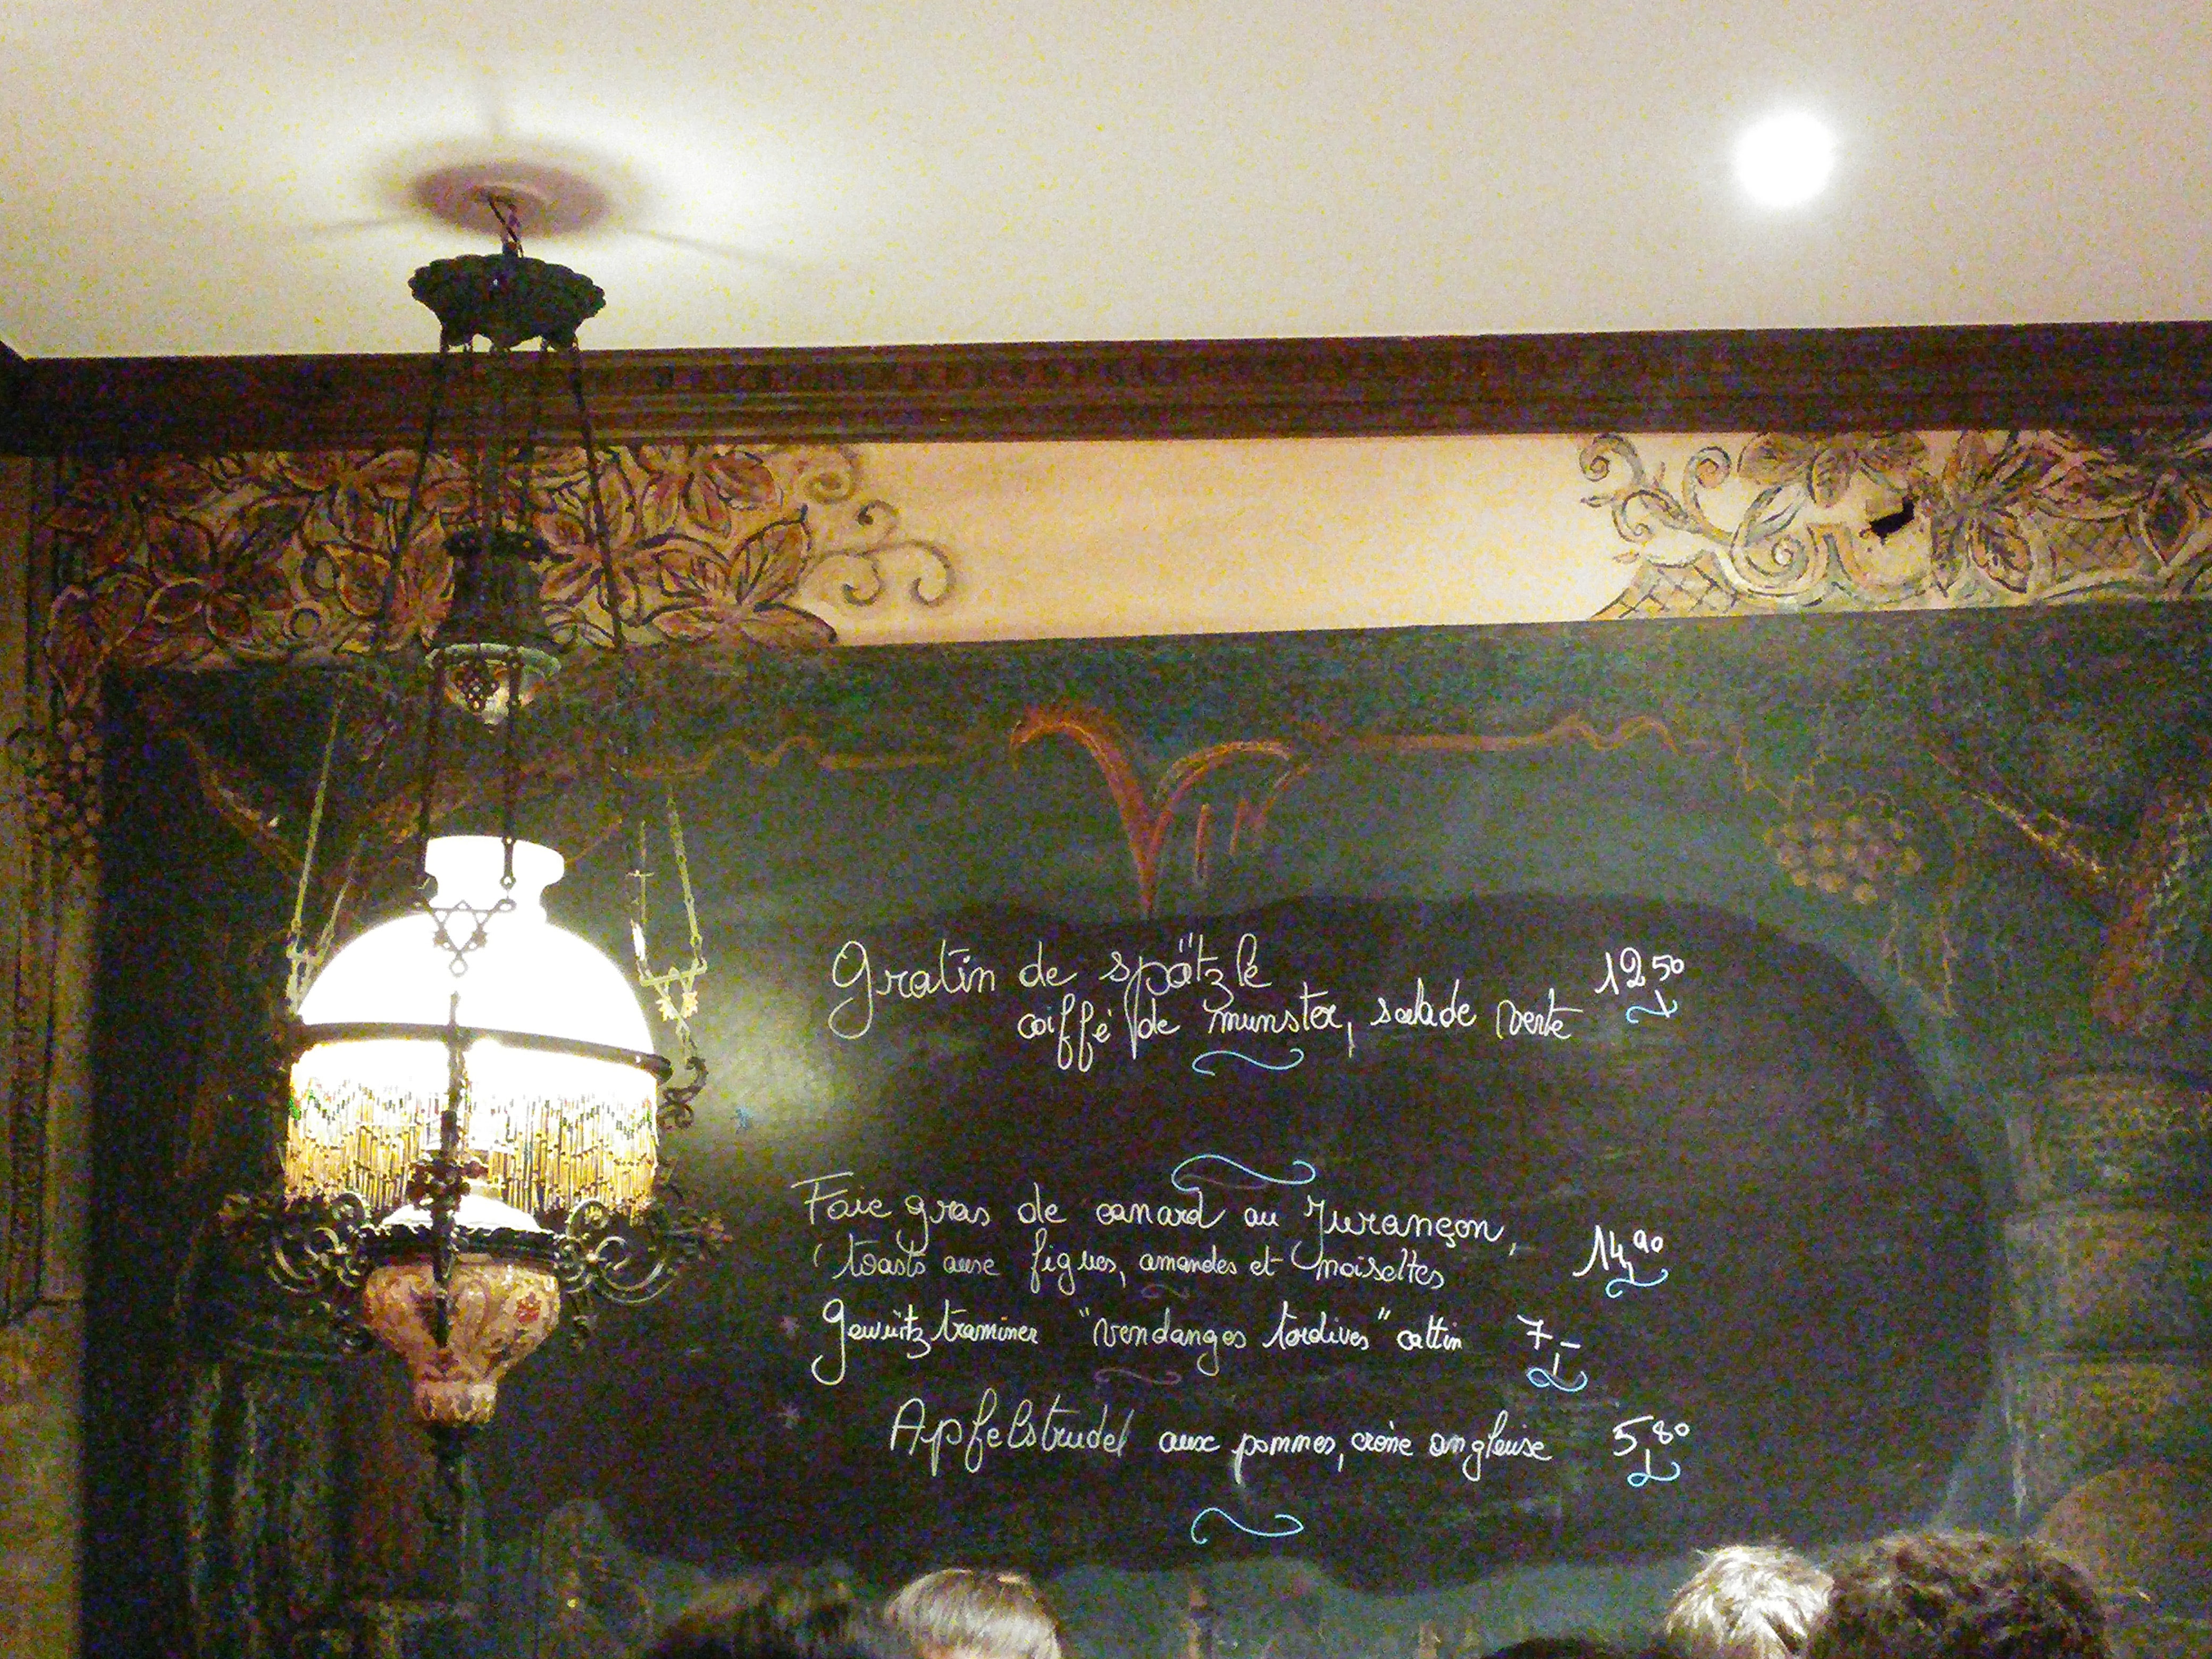 VIN
Gratin de spätzle
coiffé de munster, salade verte 12 50
Foie gras de canard au Jurançon,
toasts aux figues, amandes et noisettes 14 90
Gewürtztraminer "vendanges tardives" cattin 7,-
Apfelstrudel aux pommes, crème anglaise 5 80